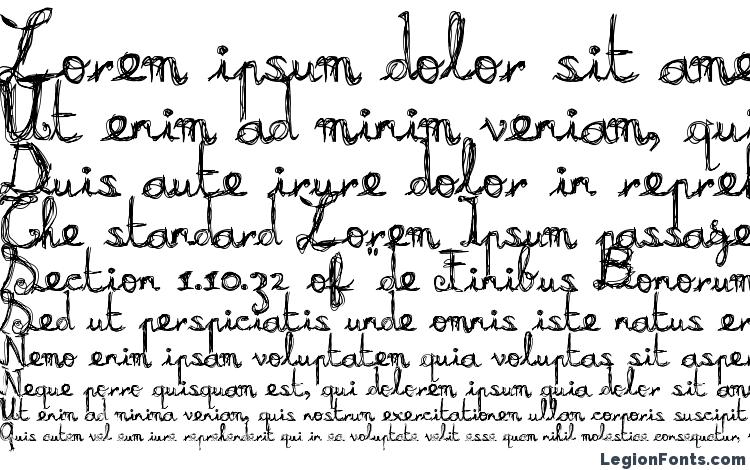 Lorem ipsum dolor sit ame
Ut enim ad minim veniam, qui
Duis aute irure dolor in repreh
The standard Lorem Ipsum passage
Section 1.10.32 of "de Finibus Bonorum
Sed ut perspiciatis unde omnis iste natus er
Nemo enim ipsam voluptatem quia voluptas sit asper
Neque porro quisquam est, qui dolorem ipsum quia dolor sit am
Ut enim ad minima veniam, quis nostrum exercitationem ullam corporis suscipit
Quis autem vel eum iure reprehenderit qui in ea voluptate velit esse quam nihil molestiae consequatur,
LegionFonts.com